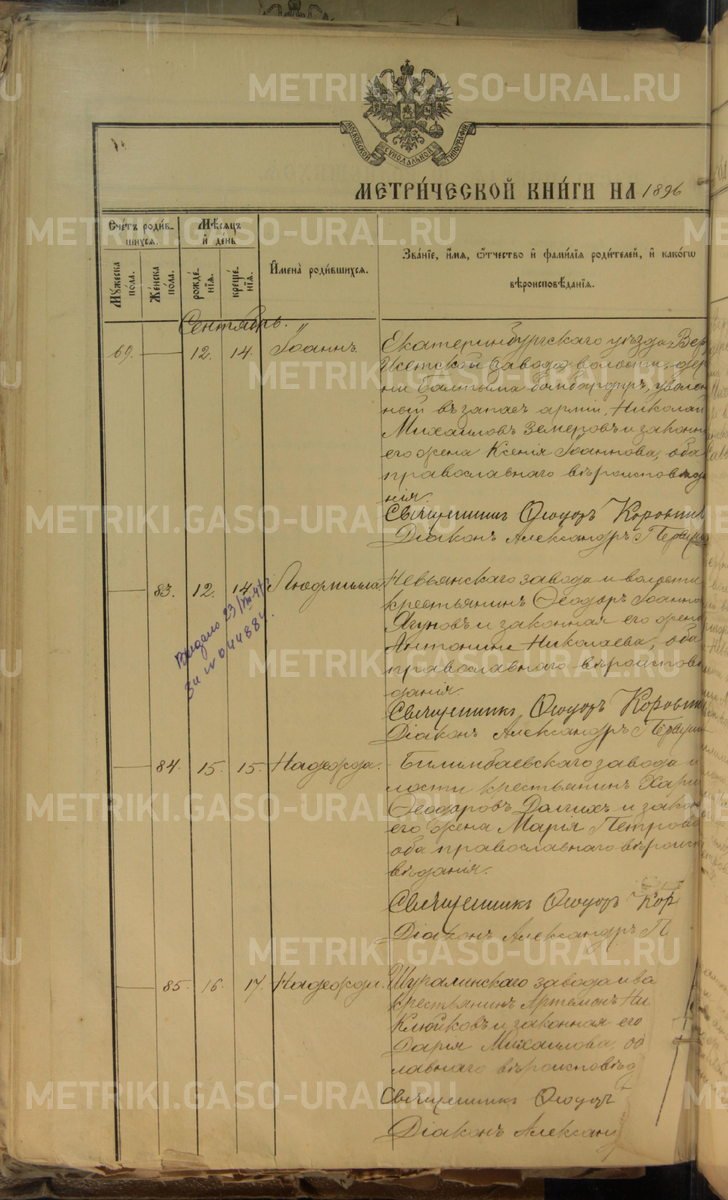 МОСКОВСКОЙ СУНОДАЛЬНОЙ ТИПОГРАФІИ
МЕТРИ́ЧЕСКОЙ КНИ́ГИ НА 1896
Сче́тъ роди́в-
шихся.
Мѣ́сяцъ
и҆ день
Му́жеска
по́ла.
Же́нска
по́ла.
рожде́-
нїѧ.
креще́-
нїѧ.
И҆мена̀ роди́вшихся.
Зва́нїе, и҆́мѧ, ѻ҆́тчество и҆ фами́лїѧ роди́телей, и҆ како́гѡ
вѣроисповѣ́данїѧ.
Сентябрь.
69. 12. 14. Іоаннъ
Екатеринбургскаго уѣзда, Вер
Исетской завода волости, дер
ни Балтыма бомбардиръ, уволен
ный въ запасъ арміи, Николай
Михаиловъ Земеровъ и законн
его жена Ксенія Іоаннова, оба
православнаго вѣроисповѣда
нія.
Священникъ Ѳеодоръ Коровин
Діаконъ Александръ
83. 12. 14. Людмилла
Невьянскаго завода и волости
крестьянинъ Ѳеодоръ Іоанно
Ягуновъ и законная его жена
Антонина Николаева, оба
православнаго вѣроисповѣ
данія
Священникъ Ѳеодоръ Коровин
Діаконъ Александръ
Выдано 23/VIII
за № 044884.
84. 15. 15. Надежда.
Билимбаевскаго завода и
лости крестьянинъ Хари
Ѳеодоровъ Долгихъ и закон
его жена Марія Петрова
оба православнаго вѣроиспо
вѣданія.
Священникъ Ѳеодоръ Кор
Діаконъ Александръ П
85. 16. 17. Надежда.
Шуралинскаго завода и во
крестьянинъ Артемонъ Ни
Клюйковъ и законная его
Дарія Михаилова, об
лавнаго вѣроисповѣд
Священникъ Ѳеодоръ
Діаконъ Александ
METRIKI.GASO-URAL.RU